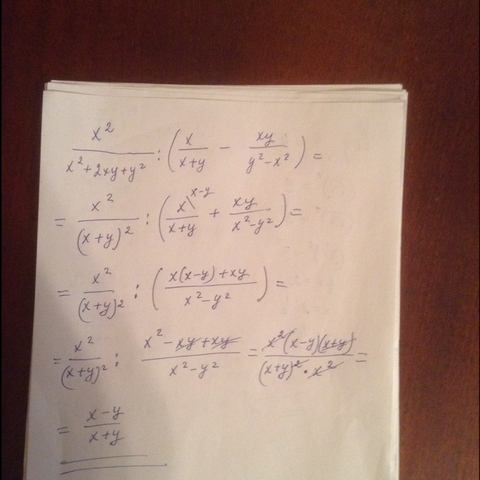 x²/(x²+2xy+y²) : (x/(x+y) − xy/(y²−x²)) =
= x²/(x+y)² : (x\ˣ⁻ʸ/(x+y) + xy/(x²−y²)) =
= x²/(x+y)² : ((x(x−y)+xy)/(x²−y²)) =
= x²/(x+y)² : (x²−xy+xy)/(x²−y²) = x²(x−y)(x+y)/((x+y)²·x²) =
= (x−y)/(x+y)